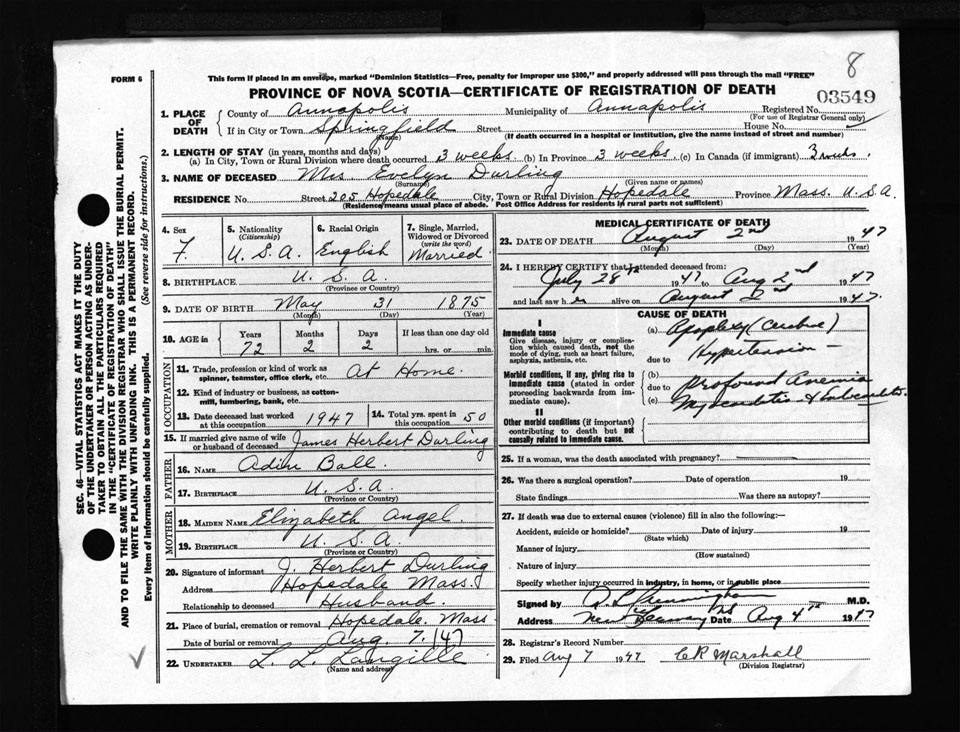 8
FORM 6
This form if placed in an envelope, marked "Dominion Statistics—Free, penalty for improper use $300," and properly addressed will pass through the mail "FREE"
PROVINCE OF NOVA SCOTIA—CERTIFICATE OF REGISTRATION OF DEATH
03549
1. PLACE OF DEATH
County of Annapolis Municipality of Annapolis Registered No.
(For use of Registrar General only)
If in City or Town Springfield Street House No.
(Name) (If death occurred in a hospital or institution, give the name instead of street and number)
2. LENGTH OF STAY (in years, months and days)
(a) In City, Town or Rural Division where death occurred 3 weeks (b) In Province 3 weeks (c) In Canada (if immigrant) 3 weeks.
3. NAME OF DECEASED Mrs. Evelyn Durling
(Surname) (Given name or names)
RESIDENCE No. Street 205 Hopedale City, Town or Rural Division Hopedale Province Mass. U.S.A.
(Residence means usual place of abode. Post Office Address for residents in rural parts not sufficient)
4. Sex
F.
5. Nationality
(Citizenship)
U.S.A.
6. Racial Origin
English
7. Single, Married, Widowed or Divorced
(write the word)
Married
8. BIRTHPLACE U.S.A.
(Province or Country)
9. DATE OF BIRTH May 31 1875
(Month) (Day) (Year)
10. AGE in
Years Months Days If less than one day old
72 2 2 hrs. or min.
OCCUPATION
11. Trade, profession or kind of work as
spinner, teamster, office clerk, etc. At Home.
12. Kind of industry or business, as cotton-
mill, lumbering, bank, etc.
13. Date deceased last worked
at this occupation 1947
14. Total yrs. spent in
this occupation 50
15. If married give name of wife
or husband of deceased James Herbert Durling
FATHER
16. NAME Adin Ball.
17. BIRTHPLACE U.S.A.
(Province or Country)
MOTHER
18. MAIDEN NAME Elizabeth Angel.
19. BIRTHPLACE U.S.A.
(Province or Country)
20. Signature of informant J. Herbert Durling
Address Hopedale Mass.
Relationship to deceased Husband.
21. Place of burial, cremation or removal Hopedale. Mass
Date of burial or removal Aug. 7./47
22. UNDERTAKER L. L. Langille
(Name and address)
MEDICAL CERTIFICATE OF DEATH
23. DATE OF DEATH August 2nd 1947
(Month) (Day) (Year)
24. I HEREBY CERTIFY that I attended deceased from:
July 28th 1947 to Aug 2nd 1947
and last saw her alive on August 2nd 1947.
CAUSE OF DEATH
I
Immediate cause
Give disease, injury or complica-
tion which caused death, not the
mode of dying, such as heart failure,
asphyxia, asthenia, etc.
(a) Apoplexy
due to Hypertension —
Morbid conditions, if any, giving rise to
immediate cause (stated in order
proceeding backwards from im-
mediate cause).
(b)
due to Profound Anemia
(c)
II
Other morbid conditions (if important)
contributing to death but not
causally related to immediate cause.
25. If a woman, was the death associated with pregnancy?
26. Was there a surgical operation? Date of operation 19
State findings Was there an autopsy?
27. If death was due to external causes (violence) fill in also the following:—
Accident, suicide or homicide? Date of injury 19
(State which)
Manner of injury
(How sustained)
Nature of injury
Specify whether injury occurred in industry, in home, or in public place
Signed by M.D.
Address New Germany NS Date Aug 4th 1947
28. Registrar's Record Number
29. Filed Aug 7 1947 C R Marshall
(Division Registrar)
SEC. 46—VITAL STATISTICS ACT MAKES IT THE DUTY
OF THE UNDERTAKER OR PERSON ACTING AS UNDER-
TAKER TO OBTAIN ALL THE PARTICULARS REQUIRED
IN THE "CERTIFICATE OF REGISTRATION OF DEATH"
AND TO FILE THE SAME WITH THE DIVISION REGISTRAR WHO SHALL ISSUE THE BURIAL PERMIT.
WRITE PLAINLY WITH UNFADING INK. THIS IS A PERMANENT RECORD.
Every item of information should be carefully supplied. (See reverse side for instructions.)